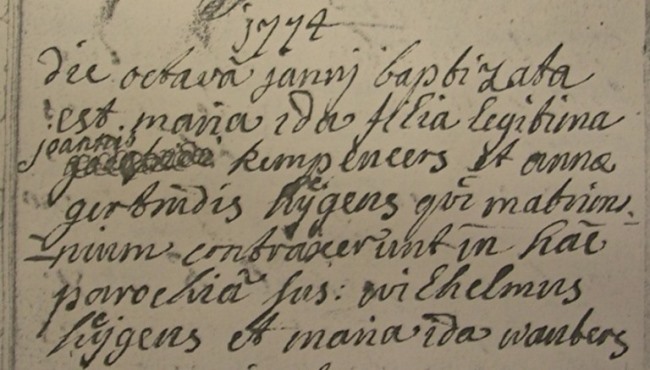 1774
die octavâ januarij baptizata
est maria ida filia legitima
joannis kempeneers et annæ
gertrudis hÿgens qui matrim=
=nium contraxerunt in hâc
parochiâ sus: wilhelmus
hÿgens et maria ida wanbers